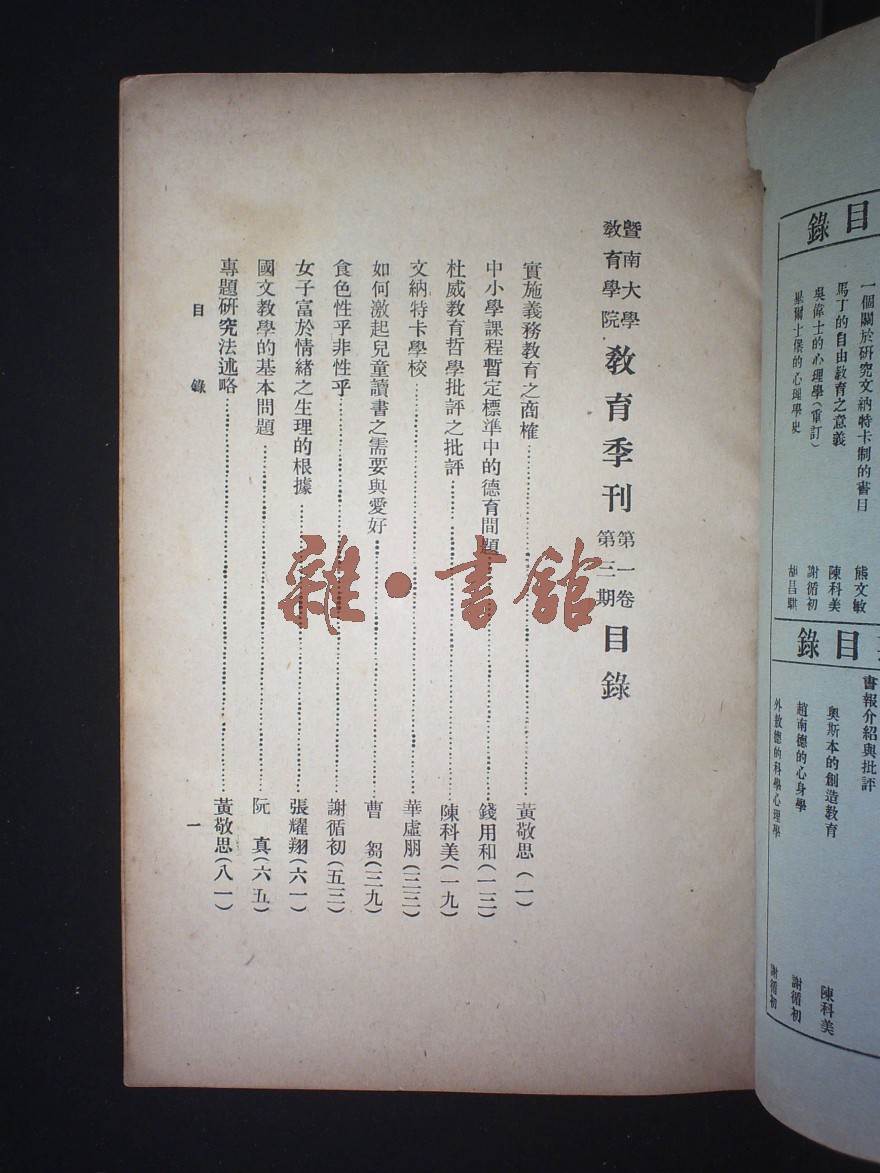 暨南大學
教育學院
教育季刊
第一卷
第三期
目錄
實施義務教育之商榷 黃敬思(一)
中小學課程暫定標準中的德育問題 錢用和(一三)
杜威教育哲學批評之批評 陳科美(一九)
文納特卡學校 華虛朋(三三)
如何激起兒童讀書之需要與愛好 曹芻(三九)
食色性乎非性乎 謝循初(五三)
女子富於情緒之生理的根據 張耀翔(六一)
國文教學的基本問題 阮真(六五)
專題研究法述略 黃敬思(八一)
目錄
一
雜·書館
目錄
一個關於研究文納特卡制的書目 熊文敏
馬丁的自由教育之意義 陳科美
吳偉士的心理學(重訂) 謝循初
畢爾士堡的心理學史 胡昌騏
目錄
書報介紹與批評
奧斯本的創造教育 陳科美
趙南德的心身學 謝循初
外敦德的科學心理學 謝循初